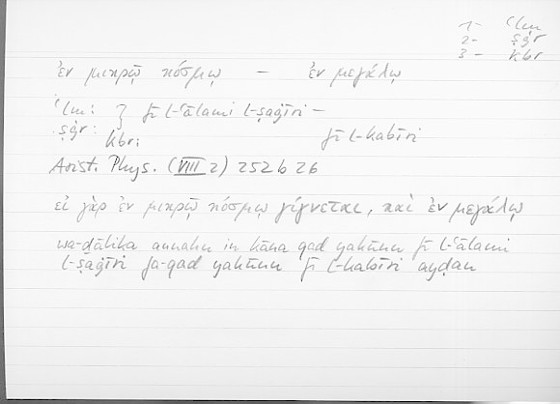 1 - ʿlm
2 - ṣġr
3 - kbr
ἐν μικρῷ κόσμῳ — ἐν μεγάλῳ
ʿlm: } fī l-ʿālami l-ṣaġīri —
ṣġr:
kbr: fī l-kabīri
Arist. Phys. (VIII 2) 252 b 26
εἰ γὰρ ἐν μικρῷ κόσμῳ γίγνεται, καὶ ἐν μεγάλῳ
wa-ḏālika annahu in kāna qad yakūnu fī l-ʿālami
l-ṣaġīri fa-qad yakūnu fī l-kabīri ayḍan